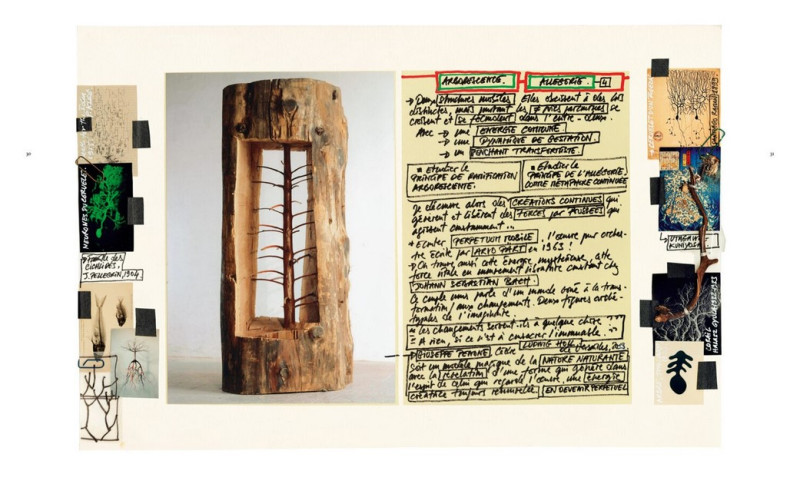 ARBORESCENCE. ALLEGORIE. 4
→ Deux structures mobiles. Elles obéissent à des lois
distinctes, mais pourtant les
croisent et se fécondent dans l'entre-temps.
Avec → une ENERGIE COMMUNE
→ une DYNAMIQUE DE GESTATION.
→ un PENCHANT TRANSFORMISTE.
* Etudier le
PRINCIPE DE RAMIFICATION
ARBORESCENTE.
* Etudier le
PRINCIPE DE L'ALLEGORIE,
COMME METAPHORE CONTINUEE
Je découvre alors des CREATIONS CONTINUES qui
génèrent et libèrent des FORCES par POUSSEES qui
agissent constamment...
→ Ecouter PERPETUUM MOBILE, l'œuvre pour orches-
tre écrite par ARVO PÄRT en 1963 !
On trouve aussi cette énergie mystérieuse, cette
force vitale en mouvement vibratoire constant chez
JOHANN SEBASTIAN BACH.
Ce couple nous parle d'un monde voué à la trans-
formation, aux changements. Deux figures arché-
typales de l'imaginaire.
les changements servent-ils à quelque chose ?
= A rien, si ce n'est à consacrer l'immuable.
LUDWIG HOHL
GIUSEPPE PENONE
soit un modèle magique de la NATURE NATURANTE
avec la révélation d'une forme qui génère dans
l'esprit de celui qui regarde l'œuvre, une énergie
créatrice toujours renouvelée. EN DEVENIR PERPETUEL
NEURONES DU CERVELET.
CICHLIDES.
J. PELLEGRIN, 1904.
UTAGAWA
KUNIYOSHI
CORAIL